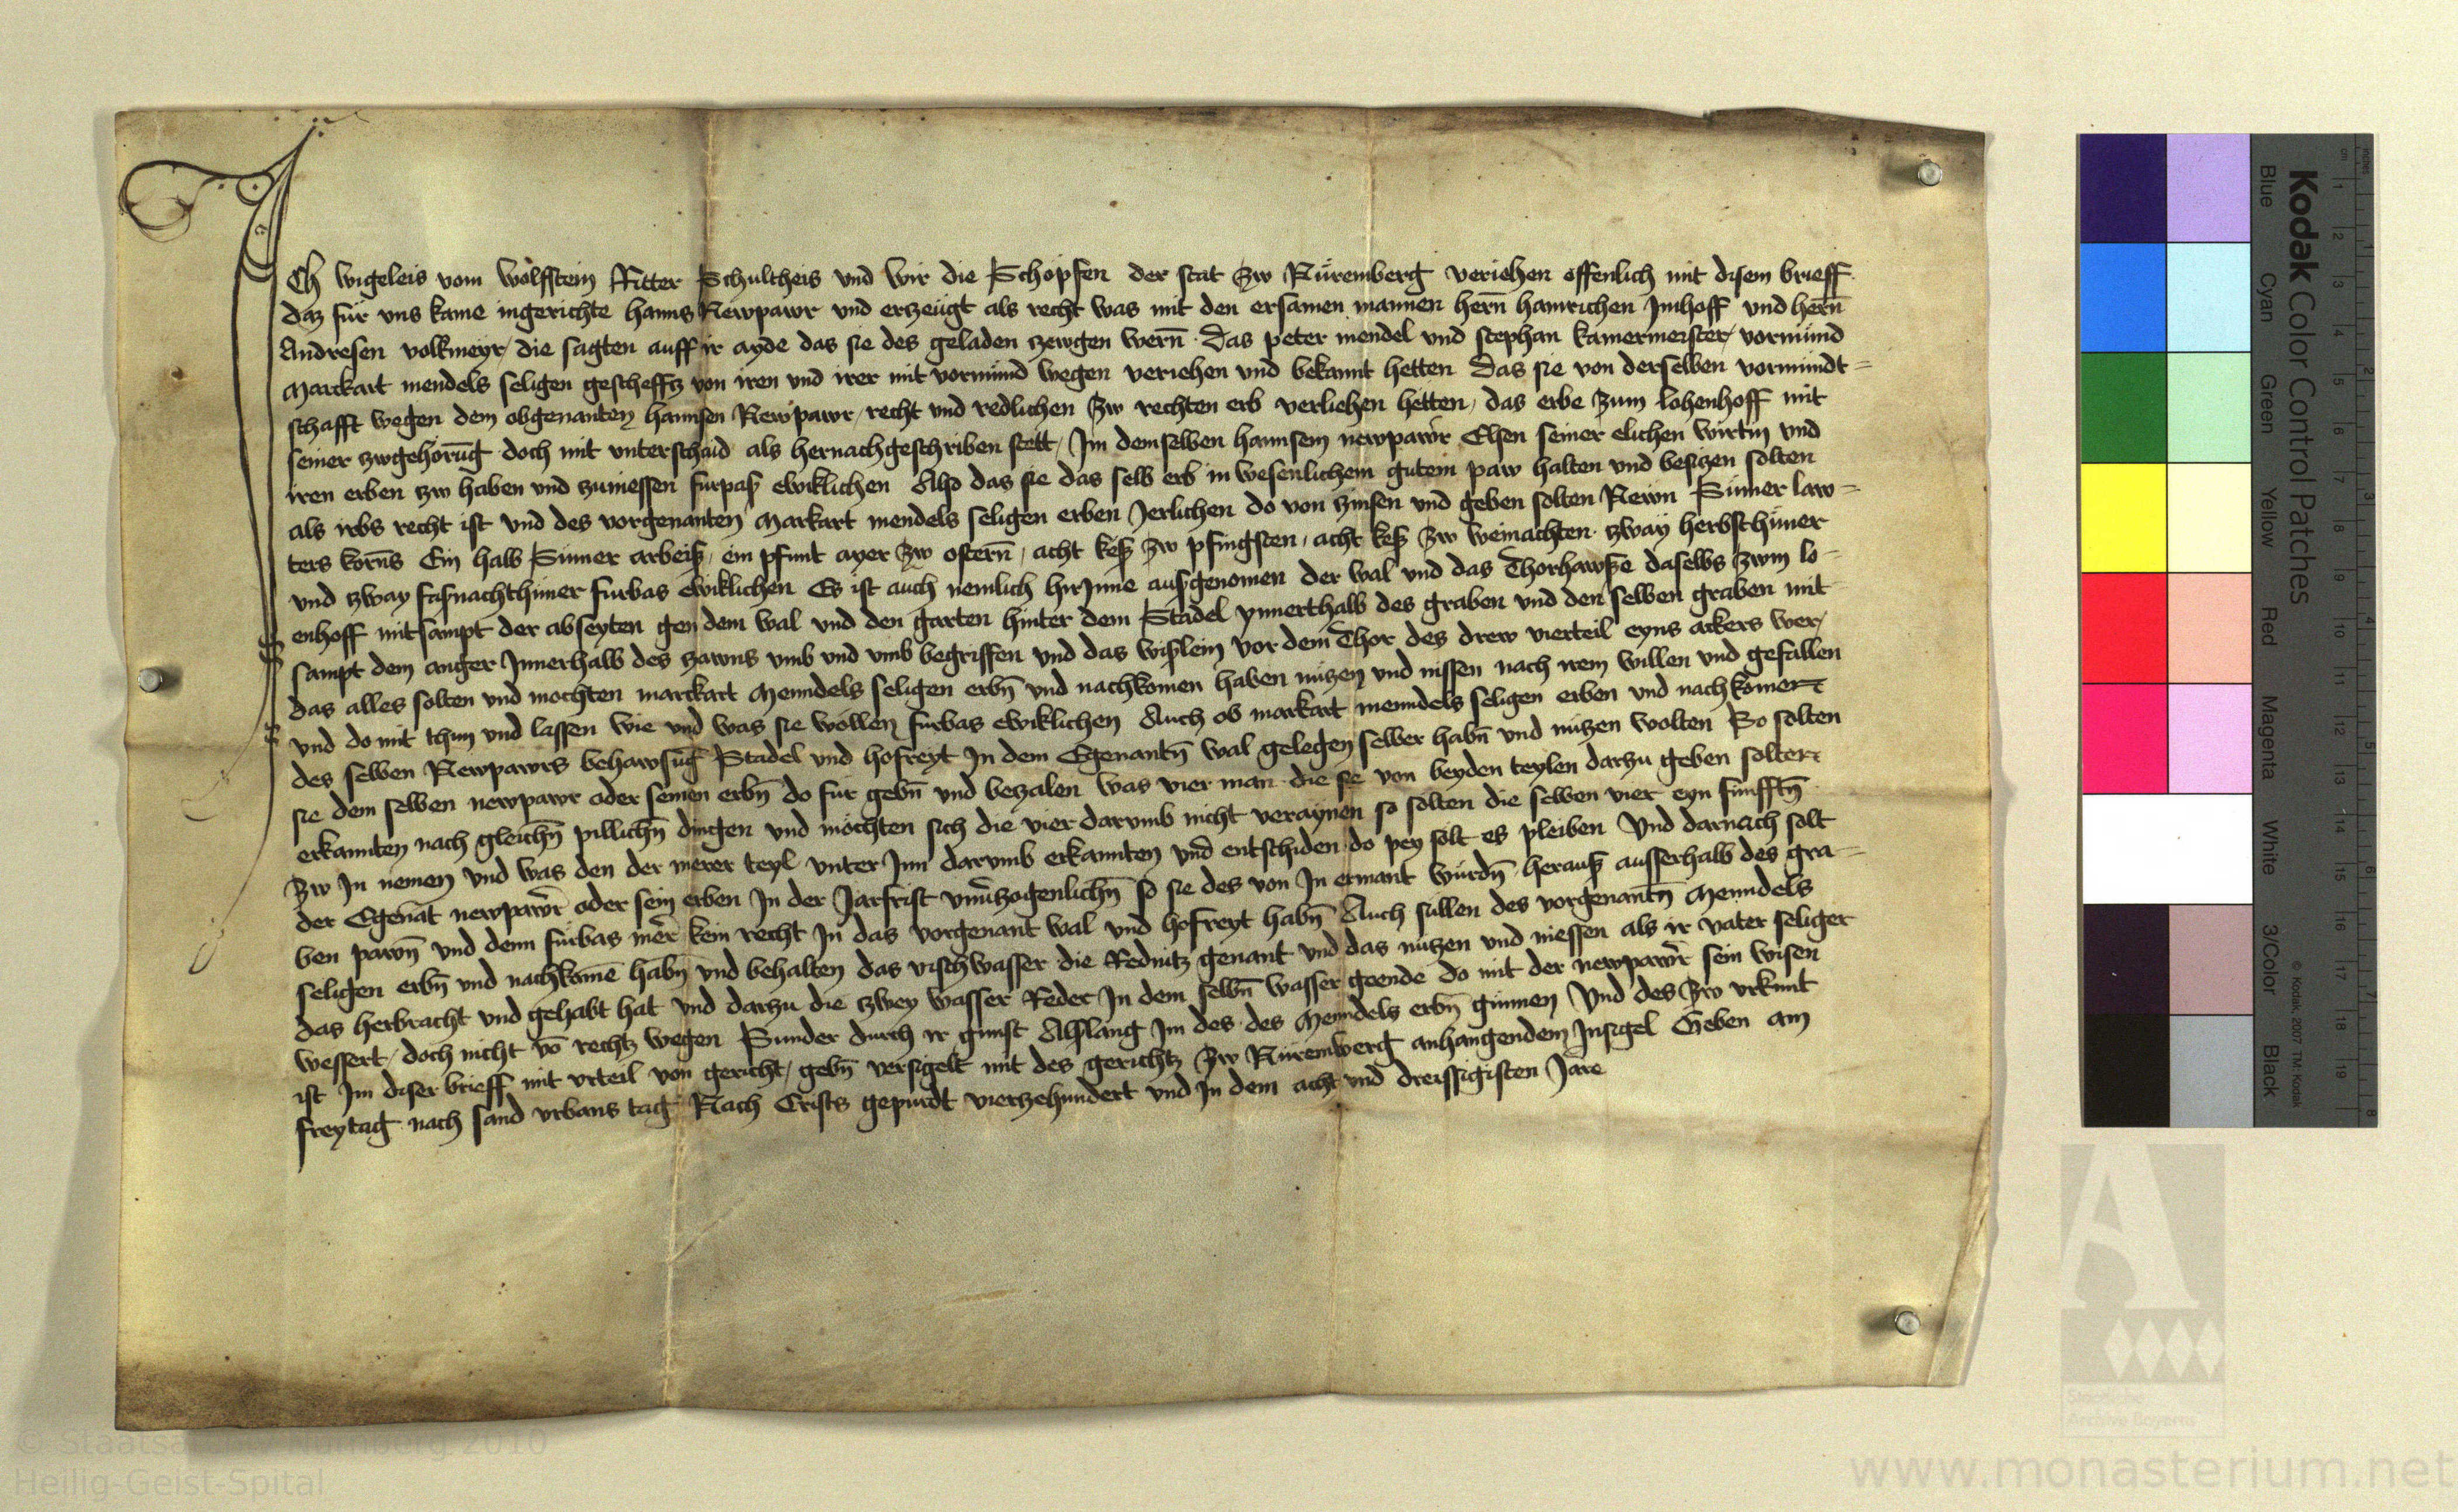 Ich wigeleis vom wolffstein Ritter Schultheis vnd wir die Schopfen der stat zw Nuremberg veriehen offenlich mit disem brieff
daz fur vns kame ingerichte hanns Newpawr vnd erzeugt als recht was mit den ersamen mannen hern̄ hainrichen Imhoff vnd hern̄
Andresen volkmeyr / die sagten auff ir ayde das sie des geladen zewgen wern̄ . Das peter mendel vnd stephan kamermeister / vormund
Marckart mendels seligen gescheffts von iren vnd irer mit vormund wegen veriehen vnd bekannt hetten Das sie von derselben vormundt=
schafft wegen dem obgenanten hannsen Newpawr / recht vnd redlichen zw rechten erb verliehen hetten / das erbe zum lohenhoff mit
seiner zwgehorūg doch mit vnterschaid als hernachgeschriben stett / Im demselben hannsem newpawr Elsen seiner elichen wirtin vnd
iren erben zw haben vnd zuniessen furpaß ewiklichen Also das sie das selb erb in wesenlichem gutem paw halten vnd besiczen solten
als erbs recht ist vnd des vorgenanten Markart mendels seligen erben Jerlichen do von zinsen vnd geben solten Newn Sumer law=
ters korns Ein halb Sumer arbeiß / ein pfunt ayer zw ostern̄ / acht keß zw pfingsten / acht keß zw weinachten . zway herbsthuner
vnd zway faßnachthuner furbas ewiklichen Es ist auch nemlich hirInne außgenomen der wal vnd das Thorhawße daselbs zwm lo=
enhoff mitsampt der abseyten gen dem wal vnd den garten hinter dem Stadel ynnerthalb des graben vnd den selben graben mit
sampt dem anger Innerhalb des zawns vmb vnd vmb begriffen vnd das wißlein vor dem Thor des drew vierteil eyns ackers wer /
das alles solten vnd mochten marckart Menndels seligen erbn̄ vnd nachkomen haben nuczen vnd nissen nach irem willen vnd gefallen
vnd do mit thun vnd lassen wie vnd was sie wollen furbas ewiklichen Auch ob markart menndels seligen erben vnd nachkomen
des selben Newpawrs behawsūg Stadel vnd hofreyt In dem Egenantn̄ wal gelegen selber habn̄ vnd nuczen wolten So solten
sie dem selben newpawr oder seinen erbn̄ do fur gebn̄ vnd bezalen was vier man die sie von beyden teylen darzu geben solten
erkannten nach gleichn̄ pillichn̄ dingen vnd mochten sich die vier darvmb nicht veraynen so solten die selben vier eyn funfftn̄
zw In nemen vnd was den der merer teyl vnter Inn darvmb erkannten vnd entschiden do pey solt es pleiben Vnd darnach solt
der Egenāt newpawr̄ oder sein erben In der Jarfrist vnuerzogenlichn̄ so sie des von In ermant wurdn̄ herauß ausserhalb des gra=
ben pawn̄ vnd denn furbas mer̄ kein recht In das vorgenant wal vnd hofreyt habn̄ Auch sullen des vorgenantn̄ Menndels
seligen erbn̄ vnd nachkomē habn̄ vnd behalten das vischwasser die Rednitz genant vnd das nuczen vnd niessen als ir vater seliger
das herbracht vnd gehabt hat vnd darzu die zwey wasser Reder In dem selbn̄ wasser geende do mit der newpawr̄ sein wisen
wessert / doch nicht vō rechtz wegen Sunder durch ir gunst Alslang Im des des Menndels erbn̄ gunnen Vnd des zw vrkunt
ist Im diser brieff mit vrteil von gericht / gebn̄ versigelt mit des gerichtz zw Nuremberg anhangendem Insigel Geben am
freytag nach sand vrbans tag Nach Crists gepurdt vierzehundert vnd In dem acht vnd dreissigisten Jare
Kodak Color Control Patches
Blue Cyan Green Yellow Red Magenta White 3/Color Black
© Kodak, 2007 TM: Kodak
cm 1 2 3 4 5 6 7 8 9 10 11 12 13 14 15 16 17 18 19
inches 1 2 3 4 5 6 7 8
Staatliche
Archive Bayerns
© Staatsarchiv Nürnberg 2010
Heilig-Geist-Spital
www.monasterium.net